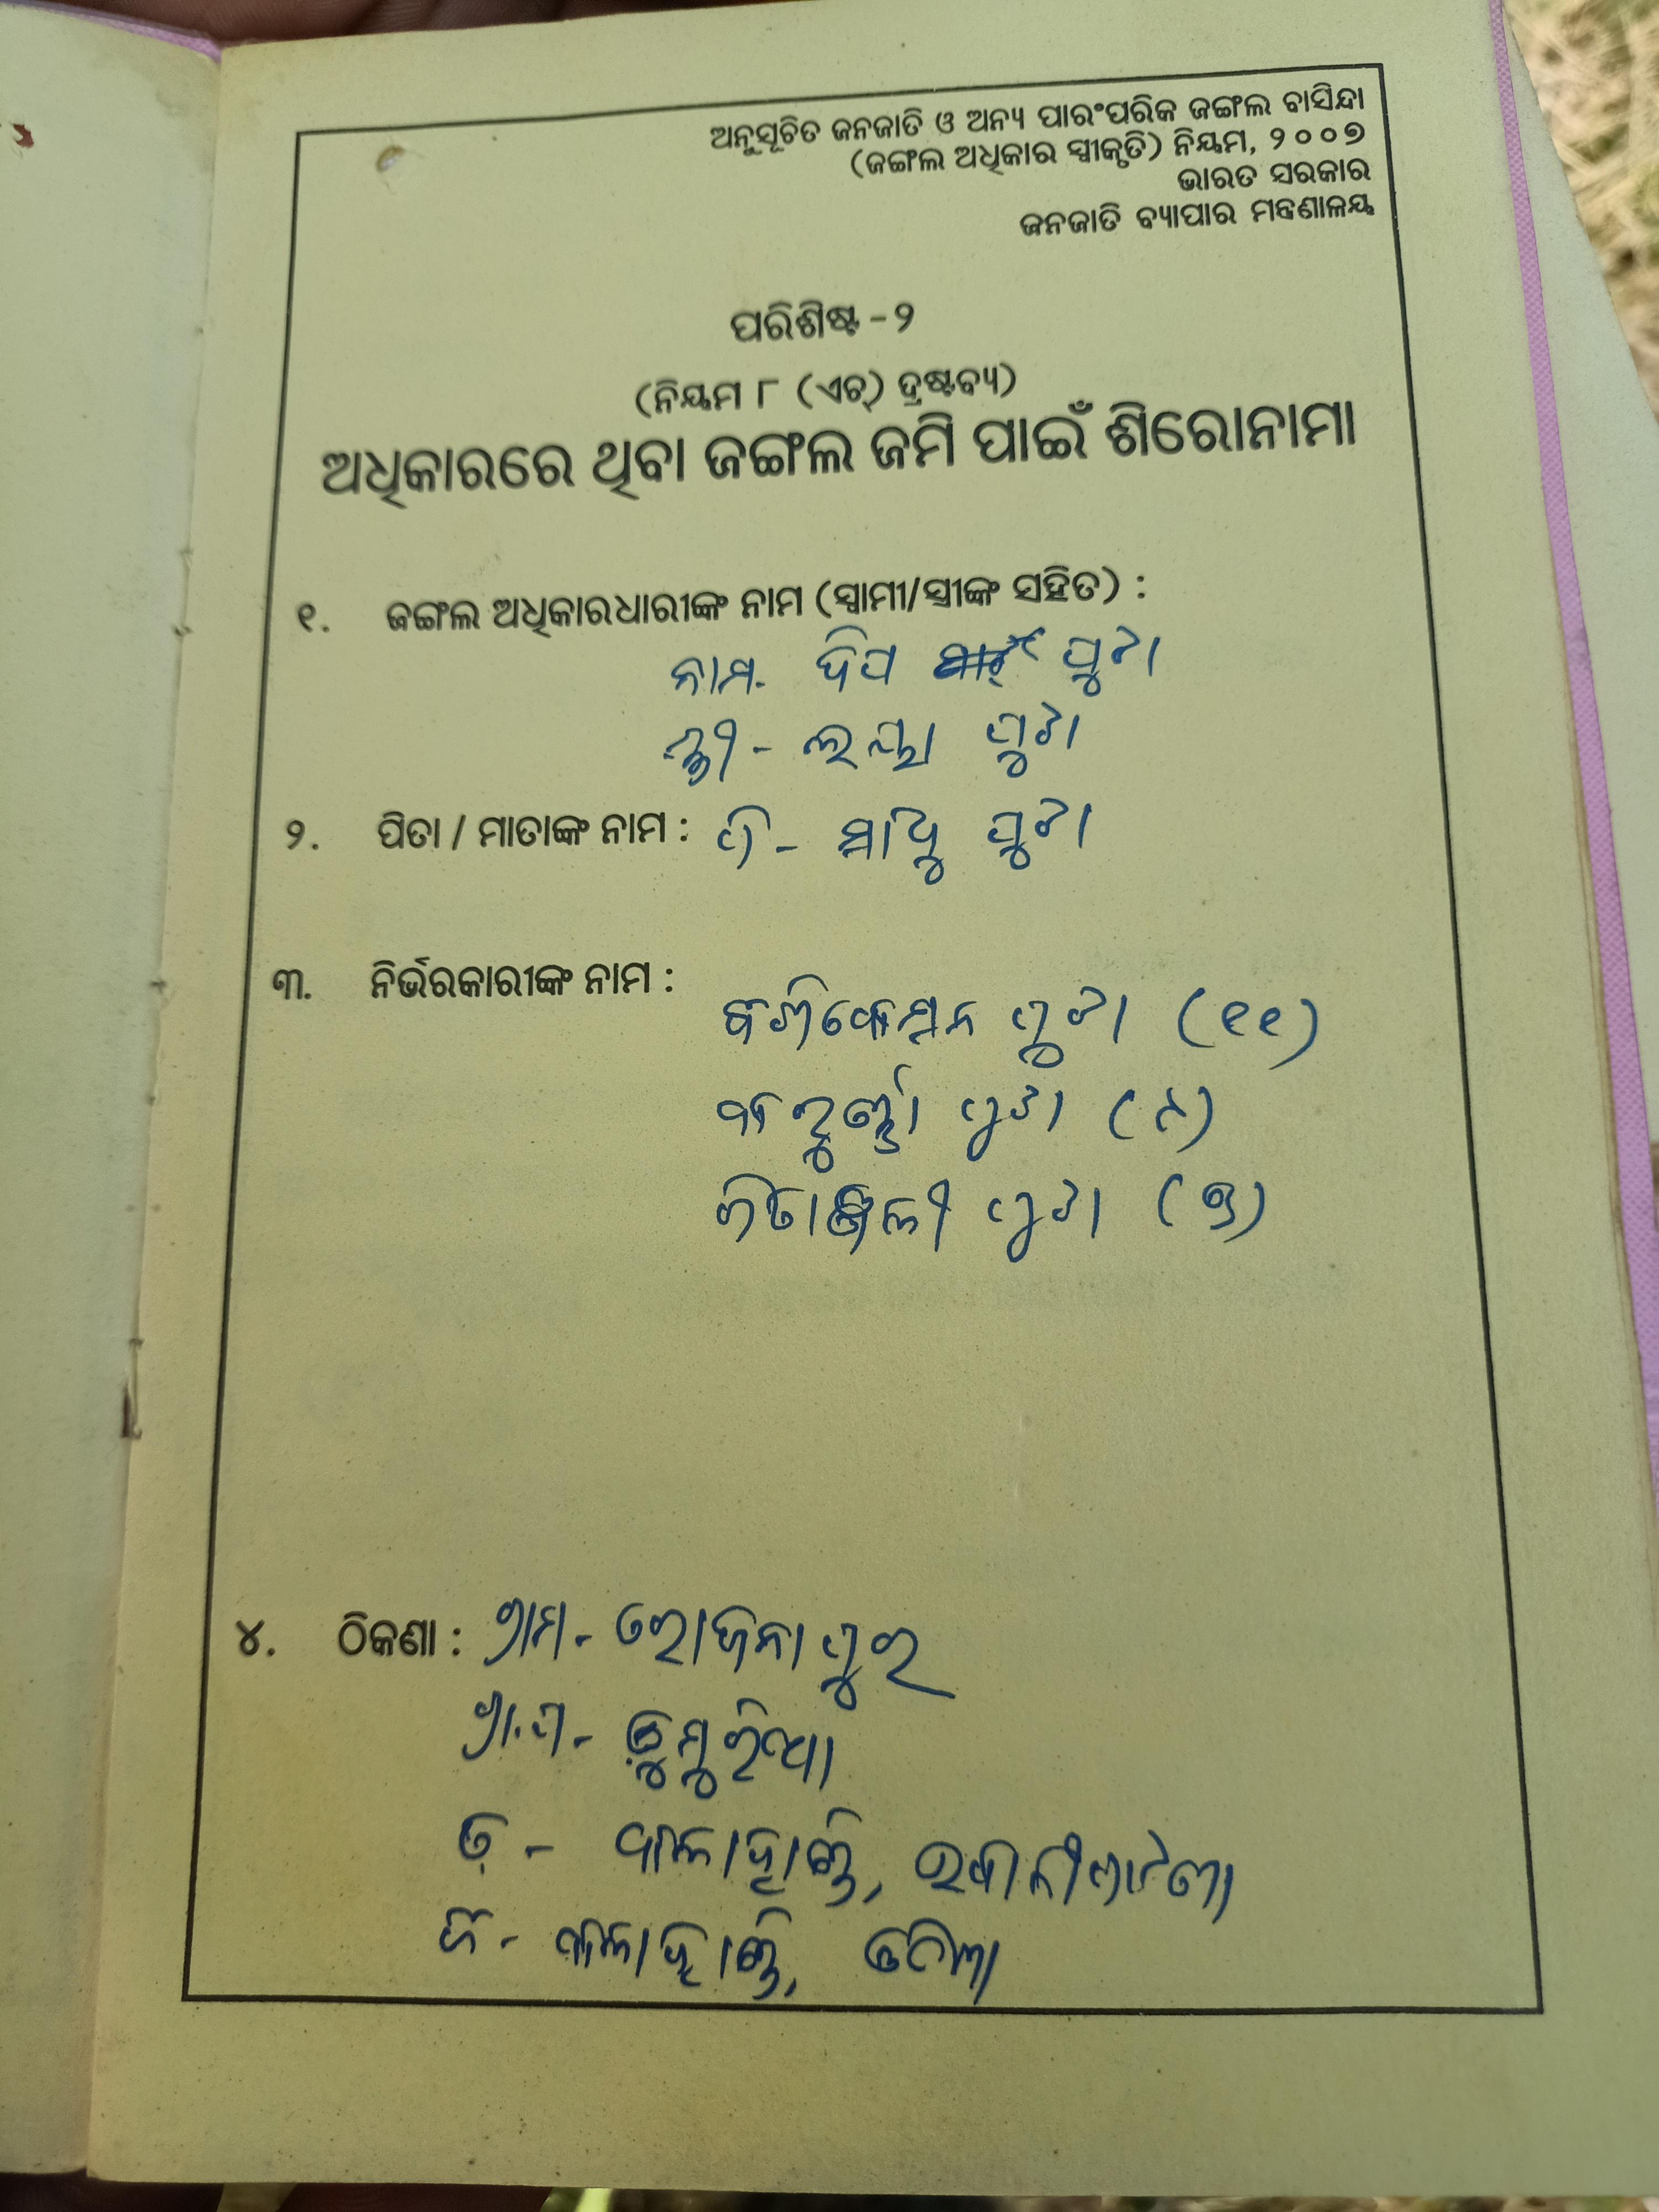 ଅନୁସୂଚିତ ଜନଜାତି ଓ ଅନ୍ୟ ପାରଂପରିକ ଜଙ୍ଗଲ ବାସିନ୍ଦା
(ଜଙ୍ଗଲ ଅଧିକାର ସ୍ୱୀକୃତି) ନିୟମ, ୨୦୦୭
ଭାରତ ସରକାର
ଜନଜାତି ବ୍ୟାପାର ମନ୍ତ୍ରଣାଳୟ
ପରିଶିଷ୍ଟ - ୨
(ନିୟମ ୮ (ଏଚ୍) ଦ୍ରଷ୍ଟବ୍ୟ)
ଅଧିକାରରେ ଥିବା ଜଙ୍ଗଲ ଜମି ପାଇଁ ଶିରୋନାମା
୧. ଜଙ୍ଗଲ ଅଧିକାରଧାରୀଙ୍କ ନାମ (ସ୍ୱାମୀ/ସ୍ତ୍ରୀଙ୍କ ସହିତ) :
ନାମ. ଦିପ ପୁଟେ।
ସ୍ତ୍ରୀ - ପୁଟେ।
୨. ପିତା / ମାତାଙ୍କ ନାମ : ପି - ସାଧୁ ପୁଟେ।
୩. ନିର୍ଭରକାରୀଙ୍କ ନାମ :
ପୁଟେ। (୧୧)
ପୁଟେ। (୯)
ଗିତାଞ୍ଜଳୀ ପୁଟେ। (୭)
୪. ଠିକଣା : ଗ୍ରାମ - ପୁର
ଗ୍ରା.ପ - ଡୁମୁରିଆ
ତ - କଳାହାଣ୍ଡି,
ଜି - କଳାହାଣ୍ଡି, ଓଡିଶା